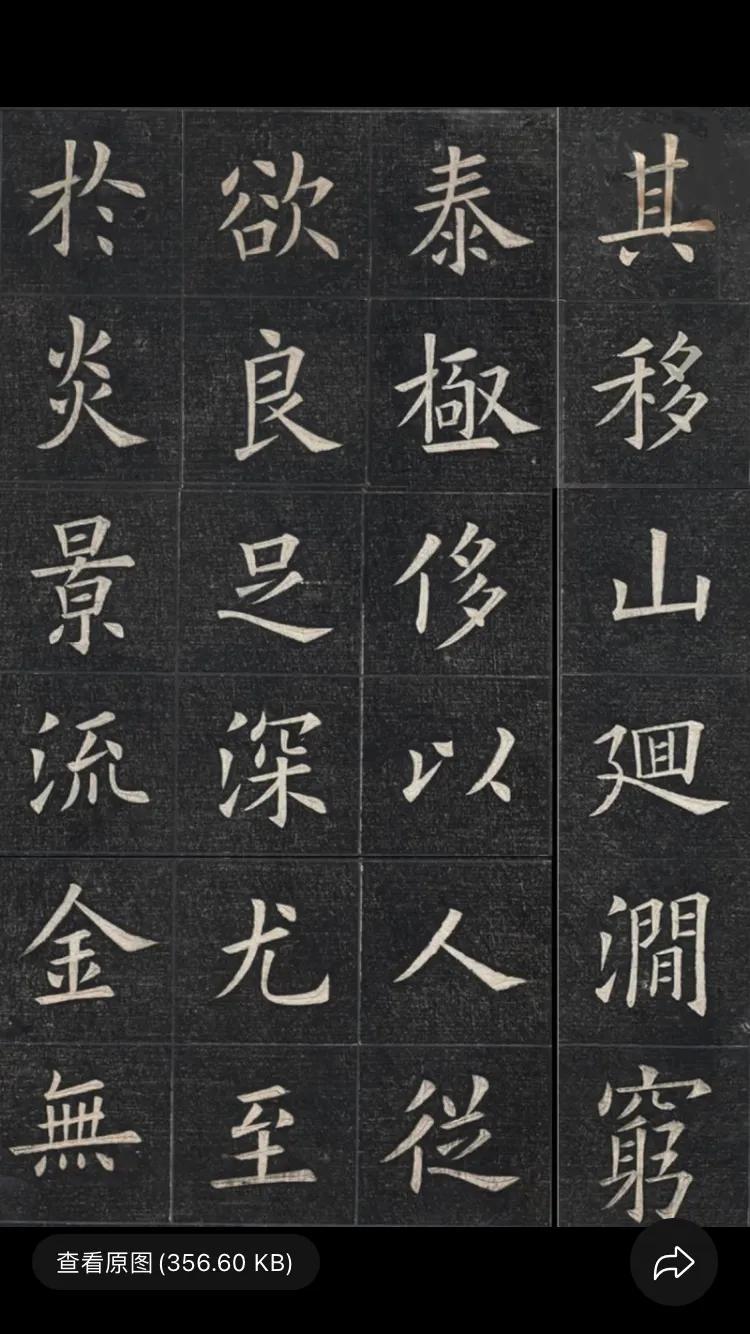 其移山廻澗窮
泰極侈以人従
欲良足深尤至
於炎景流金無
查看原图(356.60 KB)